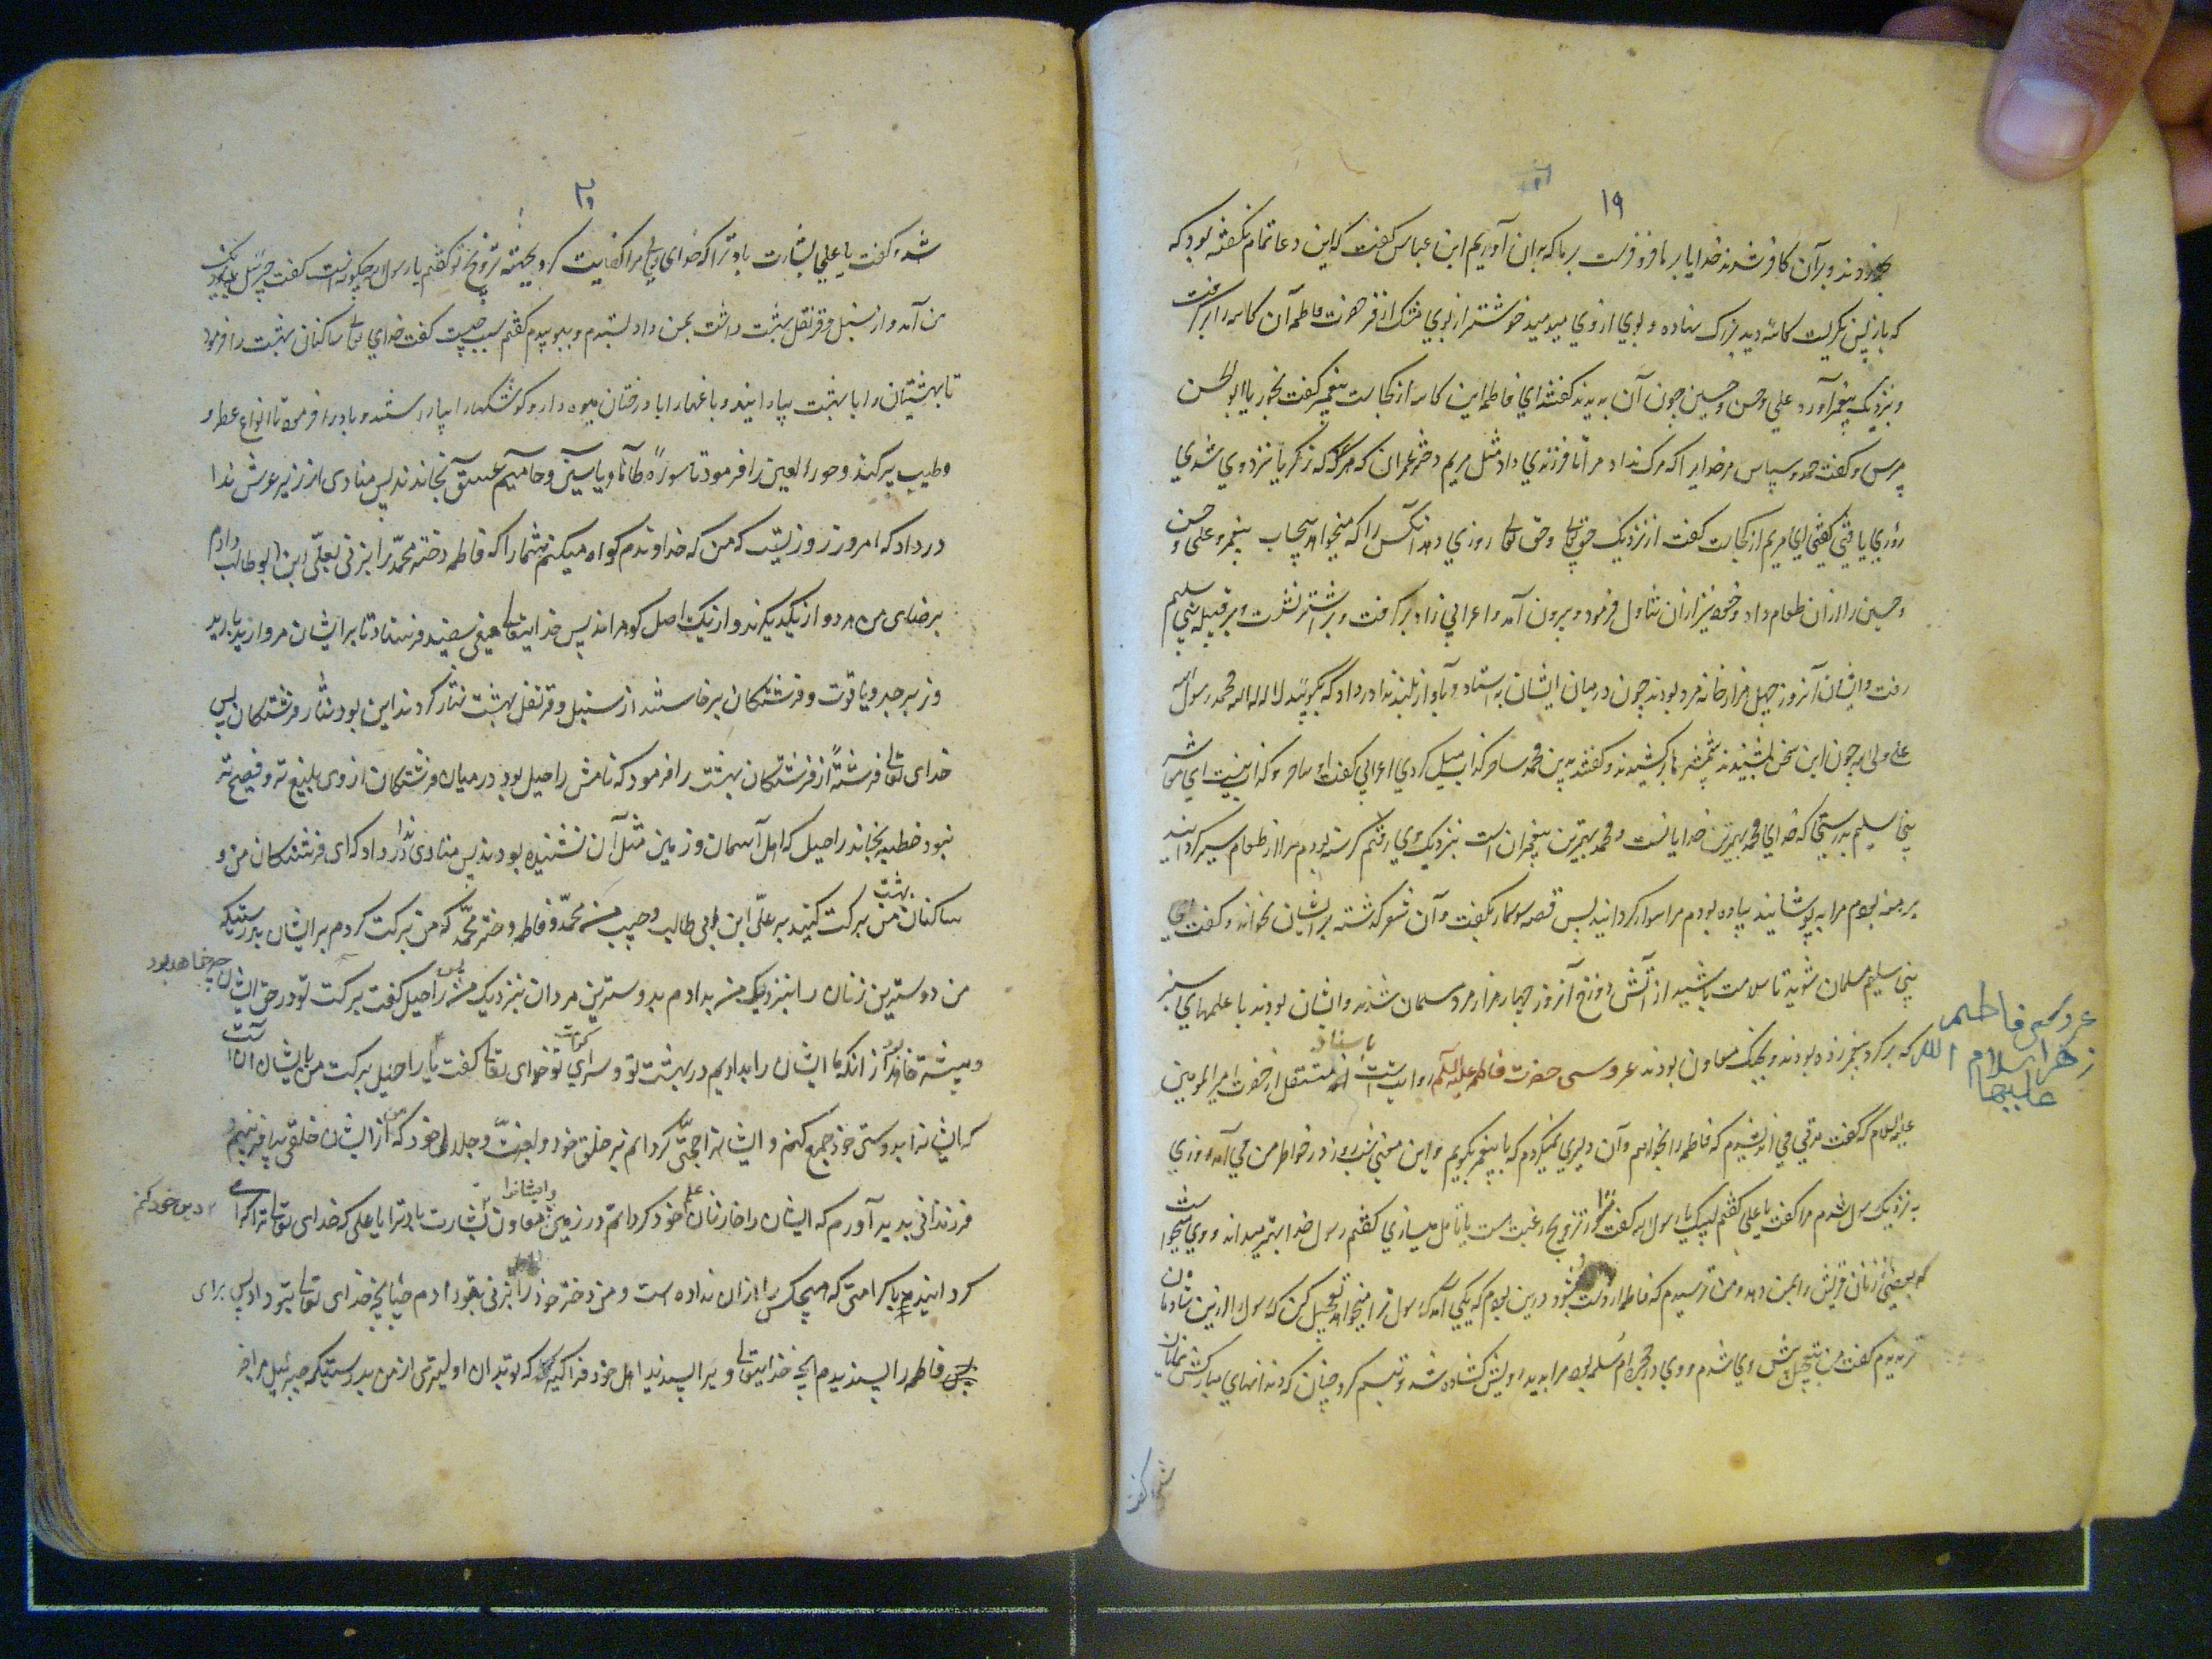 ۱۹
بخوردند و بر آن کافر شدند خدایا بر ما فرو فرست بر ما که بدان آوریم ابن عباس گفت که این دعا تمام نگفته بود که
که باز پس نگریست کاسه دید بزرک نهاده و بوی از وی میدمید خوشتر از بوی مشک اذفر حضرت فاطمه آن کاسه را برگرفت
و بنزدیک پیغمبر آورد علی و حسن و حسین چون آن بدیدند گفتند ای فاطمه این کاسه از کجاست پیغمبر گفت بخور یا ابو الحسن
مپرس و گفت حمد و سپاس مر خدایرا که مرک نداد مرا تا فرزندی داد مثل مریم دختر عمران که هرگه که زکریا نزد وی شدی
روزی یافتی گفتی ای مریم از کجاست گفت از نزدیک حق تعالی و حق تعالی روزی دهد آنکس را که میخواهد بیحساب پیغمبر و علی و حسن
و حسین را از آن طعام داد و خود نیز از آن تناول فرمود و بیرون آمد و اعرابی زاد برگرفت و بر اشتر نشست و بر قبیله بنی سلیم
رفت و ایشان آنروز چهل هزار خانه مرد بودند چون در میان ایشان به استاد و بآواز بلند ندا در داد که بگویید لا اله الا الله محمد رسول الله
علی ولی الله چون این سخن بشنیدند شمشیرها کشیدند و گفتند بدین محمد ساحر کذاب میل کردی اعرابی گفت او ساحر و کذاب نیست ای معاشر
بنی سلیم بدرستی که خدای محمد بهترین خدایانست و محمد بهترین پیغمبران است بنزدیک وی رفتم گرسنه بودم مرا از طعام سیر گردانید
برهنه بودم مرا بپوشانید پیاده بودم مرا سوار گردانید پس قصه سوسمار بگفت و آن شعر گذشته بر ایشان بخواند و گفت ای
بنی سلیم مسلمان شوید تا سلامت باشید از آتش دوزخ آنروز چهار هزار مرد مسلمان شدند و ایشان بودند با علمهای سبز
که بر گرد پیغمبر زده بودند و بجنگ معاون بودند عروسی حضرت فاطمه علیها السلام روایتست باسناد از حضرت امیر المومنین
علیه السلام که گفت مدتی می اندیشیدم که فاطمه را بخواهم و آن دلیری نمیکردم که با پیغمبر بگویم و این معنی شب و روز در خاطر من می آمد روزی
به نزدیک رسول شدم مرا گفت یا علی گفتم لبیک یا رسول الله گفت ترا در تزویج رغبت هست یا تامل میسازی گفتم رسول خدا بهتر میداند و وی میخواست
که بعضی زنان قریش را بمن دهد و من ترسیدم که فاطمه از دست بشود درین بودم که یکی آمد که رسول ترا میخواهد تعجیل کن که رسول را ازین شادمان
تر ندیدم گفت من بتعجیل پیش وی شدم و وی در حجره ام سلمه بود مرا بدید رویش گشاده شد و تبسم کرد چنان که دندانهای مبارکش نمایان
شد و گفت
عروسی فاطمه
زهرا سلام الله
علیها
۲۰
شد و گفت یا علی بشارت باد ترا که خدای تعالی مرا کفایت کرد بجهت تزویج تو گفتم یا رسول الله چگونه است گفت جبرئیل بنزدیک
من آمد و از سنبل و قرنفل بهشت داشت بمن داد بستدم و ببوییدم گفتم سبب چیست گفت خدای تعالی ساکنان بهشت را فرمود
تا بهشتیان را با بهشت بیارایند و باغها را با درختان میوه دار و کوشکها را بیاراستند و باد را فرمود تا انواع عطر و
و طیب پر کند و حور العین را فرمود تا سورهٔ طآها و یاسین و حامیم عسق بخاندند پس منادی از زیر عرش ندا
در داد که امروز روزیست که من که خداوندم گواه میکنم شما را که فاطمه دختر محمد را بزنی بعلی ابن ابو طالب دادم
برضای من هر دو از یکدیگرند و از یک اصل گوهراند پس خدایتعالی میغی سفید فرستاد تا بر ایشان مروارید بارید
و زبرجد و یاقوت و فرشتگان برخاستند از سنبل و قرنفل بهشت نثار کردند این بود نثار فرشتگان پس
خدای تعالی فرشتهٔ از فرشتگان بهشت را فرمود که نامش راحیل بود در میان فرشتگان از وی بلیغ تر و فصیح تر
نبود خطبه بخاند راحیل که اهل آسمان و زمین مثل آن نشنیده بودند پس منادی ندا در داد که ای فرشتگان من و
ساکنان بهشت من برکت کنید بر علی ابن ابی طالب و حبیب من محمد و فاطمه دختر محمد که من برکت کردم بر ایشان بدرستیکه
من دوسترین زنان را بنزدیک من بدادم بدوسترین مردان بنزدیک من پس راحیل گفت برکت تو در حق ایشان چه خاهد بود
و بیشتر خاهد بود از انکه ما ایشان را بدادیم در بهشت تو و سرای کرامت تو خدای تعالی گفت یا راحیل برکت من بایشان انست
که ایشانرا بدوستی خود جمع کنم و ایشانرا حجتی گردانم بر خلق خود و بعزت و جلال خود که من از ایشان خلقی بیافرینم و
فرزندانی پدید آورم که ایشان را خازنان علم خود گردانم در زمین و ایشانرا معاون دین خود کنم بشارت باد ترا یا علی که خدای تعالی ترا گرامی
گردانید با کرامتی که هیچکس را ازان نداده است و من دختر خود را بزنی بتو دادم چنانچه خدای تعالی بتو داد پس برای
فاطمه را پسندیدم آنچه خدایتعالی ویرا پسندید اهل خود فراگیر که تو بدان اولیتری از من بدرستیکه جبرئیل مرا خبر